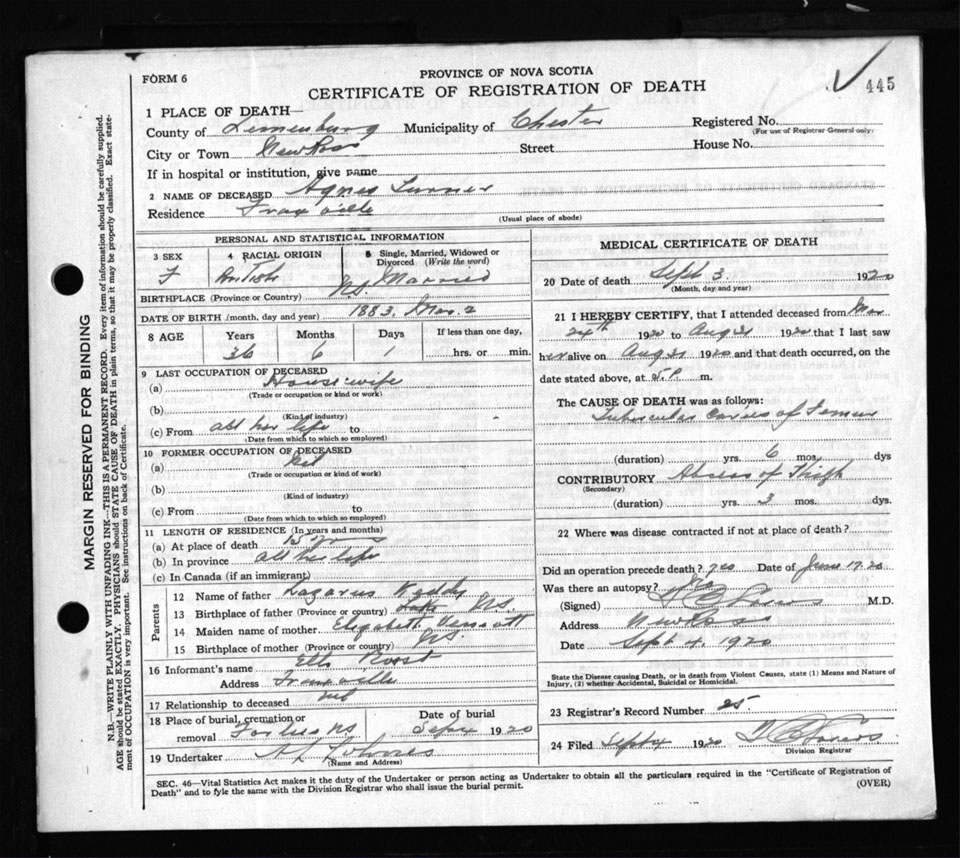 445
FORM 6
PROVINCE OF NOVA SCOTIA
CERTIFICATE OF REGISTRATION OF DEATH
1 PLACE OF DEATH—
County of Lunenburg Municipality of Chester Registered No.
(For use of Registrar General only.)
City or Town New Ross Street House No.
If in hospital or institution, give name
2 NAME OF DECEASED Agnes Turner
Residence
(Usual place of abode)
PERSONAL AND STATISTICAL INFORMATION
3 SEX 4 RACIAL ORIGIN 5 Single, Married, Widowed or Divorced (Write the word)
F British Married
BIRTHPLACE (Province or Country) N.S.
DATE OF BIRTH (month, day and year) 1883, Mar. 2
8 AGE Years Months Days If less than one day,
36 6 1 hrs. or min.
9 LAST OCCUPATION OF DECEASED
(a) Housewife
(Trade or occupation or kind or work)
(b)
(Kind of industry)
(c) From all her life to
(Date from which to which so employed)
10 FORMER OCCUPATION OF DECEASED
(a)
(Trade or occupation or kind of work)
(b)
(Kind of industry)
(c) From to
(Date from which to which so employed)
11 LENGTH OF RESIDENCE (In years and months)
(a) At place of death 15 yrs
(b) In province all her life
(c) In Canada (if an immigrant)
Parents
12 Name of father Lazarus
13 Birthplace of father (Province or country) N.S.
14 Maiden name of mother Elizabeth
15 Birthplace of mother (Province or country) N.S.
16 Informant's name
Address
17 Relationship to deceased
18 Place of burial, cremation or removal Date of burial
N.S. Sept 4 1920
19 Undertaker
(Name and Address)
MEDICAL CERTIFICATE OF DEATH
20 Date of death Sept 3 1920
(Month, day and year)
21 I HEREBY CERTIFY, that I attended deceased from
24th 1920 to Aug 31 1920 that I last saw
her alive on Aug 31 1920 and that death occurred, on the
date stated above, at 5 P. m.
The CAUSE OF DEATH was as follows:
Tubercular Caries of Femur
(duration) yrs. 6 mos. dys
CONTRIBUTORY Abscess of Thigh
(Secondary)
(duration) yrs. 3 mos. dys.
22 Where was disease contracted if not at place of death?
Did an operation precede death? yes Date of June 17.20
Was there an autopsy? No
(Signed) M.D.
Address New Ross
Date Sept 4, 1920
State the Disease causing Death, or in death from Violent Causes, state (1) Means and Nature of
Injury, (2) whether Accidental, Suicidal or Homicidal.
23 Registrar's Record Number 25
24 Filed Sept 4 1920
Division Registrar
SEC. 46—Vital Statistics Act makes it the duty of the Undertaker or person acting as Undertaker to obtain all the particulars required in the "Certificate of Registration of
Death" and to fyle the same with the Division Registrar who shall issue the burial permit. (OVER)
MARGIN RESERVED FOR BINDING
N.B.—WRITE PLAINLY WITH UNFADING INK—THIS IS A PERMANENT RECORD. Every item of information should be carefully supplied.
AGE should be stated EXACTLY. PHYSICIANS should STATE CAUSE OF DEATH in plain terms, so that it may be properly classified. Exact state-
ment of OCCUPATION is very important. See instructions on back of Certificate.